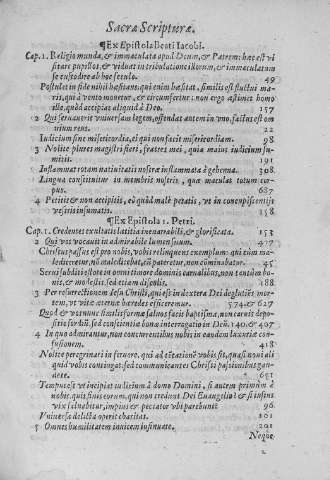 Sacræ Scripturæ.
¶Ex Epistola Beati Iacobi.
Cap. 1. Religio munda, & immaculata apud Deum, & Patrem: hæc est vi
sitare pupillos, & viduas in tribulatione illorum, & immaculatum
se custodire ab hoc sæculo. 49
Postulet in fide nihil hæsitans. qui enim hæsitat, similis est fluctui ma
ris, qui à vento mouetur, & circumfertur: non ergo æstimet homo
ille, quòd accipiat aliquid à Deo. 157
2 Qui seruauerit vniuersam legem, offendat autem in vno, factus est om
nium reus. 22
Iudicium sine misericordia, ei qui non facit misericordiam. 98
3 Nolite plures magistri fieri, fratres mei, quia maius iudicium sumi
mitis. 191
Inflammat rotam natiuitatis nostræ inflammata à gehenna. 308
Lingua constituitur in membris nostris, quæ maculat totum cor-
pus. 687
4 Petitis & non accipitis, eò quòd malè petatis, vt in concupiscentijs
vestris insumatis. 158
¶Ex Epistola 1. Petri.
Cap. 1. Credentes exultatis lætitia inenarrabili, & glorificata. 153
2 Qui vos vocauit in admirabile lumen suum. 477
Christus passus est pro nobis, vobis relinquens exemplum: qui cùm male
malediceretur, nõ maledicebat, cùm pateretur, non cõminabatur. 45
Serui subditi estote in omni timore dominis carnalibus, non tantùm bo
nis, & modestis, sed etiam discolis. 188
3 Per resurrectionem Iesu Christi, qui est in dextera Dei deglutiẽs mor
tem, vt vitæ æternæ hæredes efficeremur. 574. & 627
Quod & vos nunc similis formæ saluos facit baptisma, non carnis depo
sitio sordiũ, sed conscientiæ bonæ interrogatio in Deũ. 140. & 497
4 In quo admirantur, non concurrentibus nobis in eandem luxuriæ con
fusionem. 418
Nolite peregrinari in feruore, qui ad tentationẽ vobis fit, quasi noui ali
quid vobis contingat: sed communicantes Christi passionibus gau-
dete. 651
Tempus est vt incipiat iudicium à domo Domini, si autem primùm à
nobis, quis finis eorum, qui non credunt Dei Euangelio? & si iustus
vix saluabitur, impius & peccator vbi parebunt? 96
Vniuersa delicta operit charitas. 101
5 Omnes humilitatem inuicem insinuate. 291
Neque